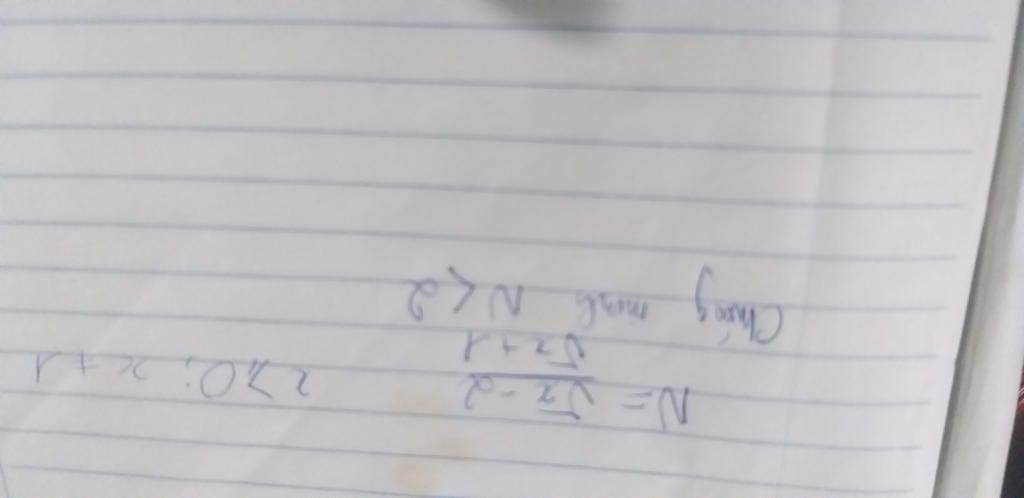 N = \frac{\sqrt{x} - 2}{\sqrt{x} + 1} x ≥ 0; x ≠ 1
Chứng minh N < 2